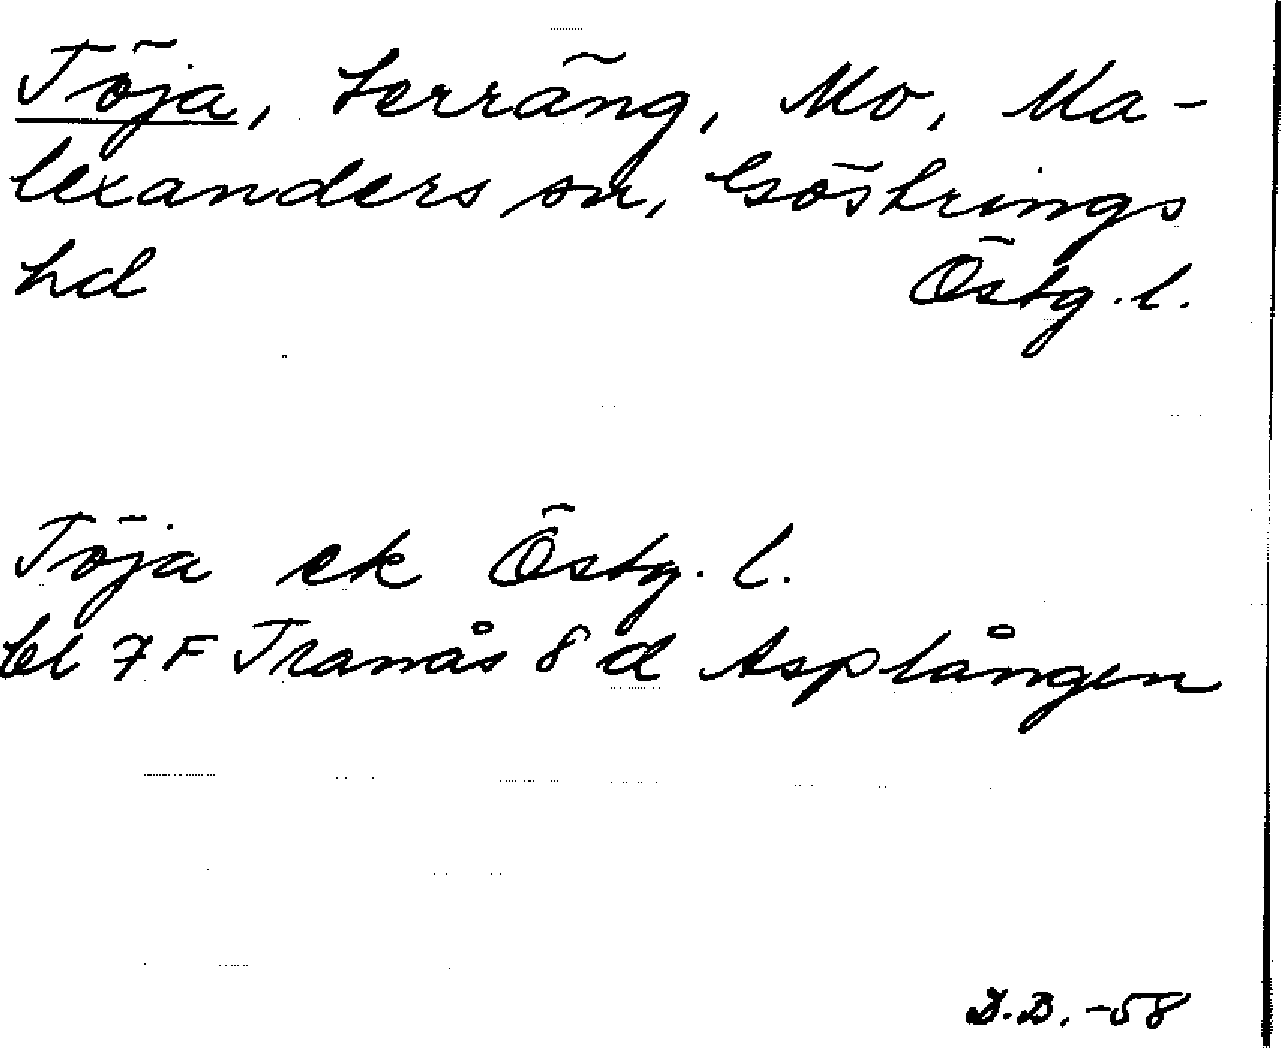 Töja, terräng, Mo, Ma-
lexanders sn, Göstrings
hd Östg. l.
Töja ek Östg. l.
bl 7 F Tranås 8 d Asplången
D.B. -58